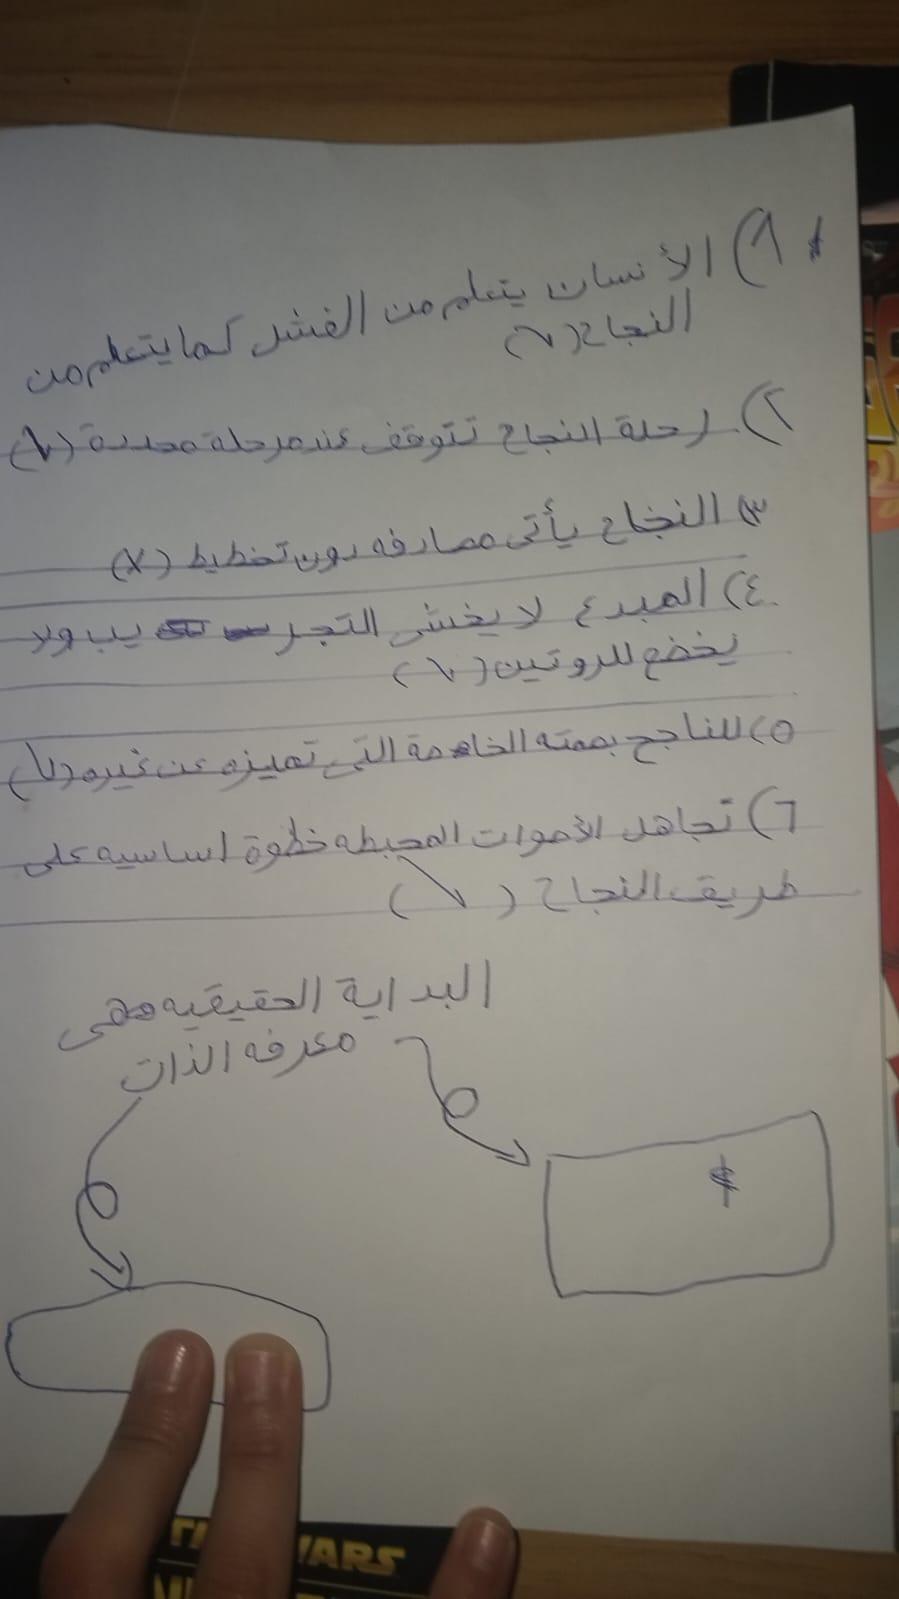 ١) الأنسان يتعلم من الفشل كما يتعلم من
النجاح (✓)
٢) رحلة النجاح تتوقف عند مرحلة محددة (✓)
٣) النجاح يأتى مصادفه دون تخطيط (X)
٤) المبدع لا يخشى التجر يب ولا
يخضع للروتين (✓)
٥) للناجح بصمته الخاصة التى تميزه عن غيره (✓)
٦) تجاهل الأصوات المحبطه خطوة اساسيه على
طريق النجاح (✓)
البداية الحقيقيه هى
معرفه الذات
WARS